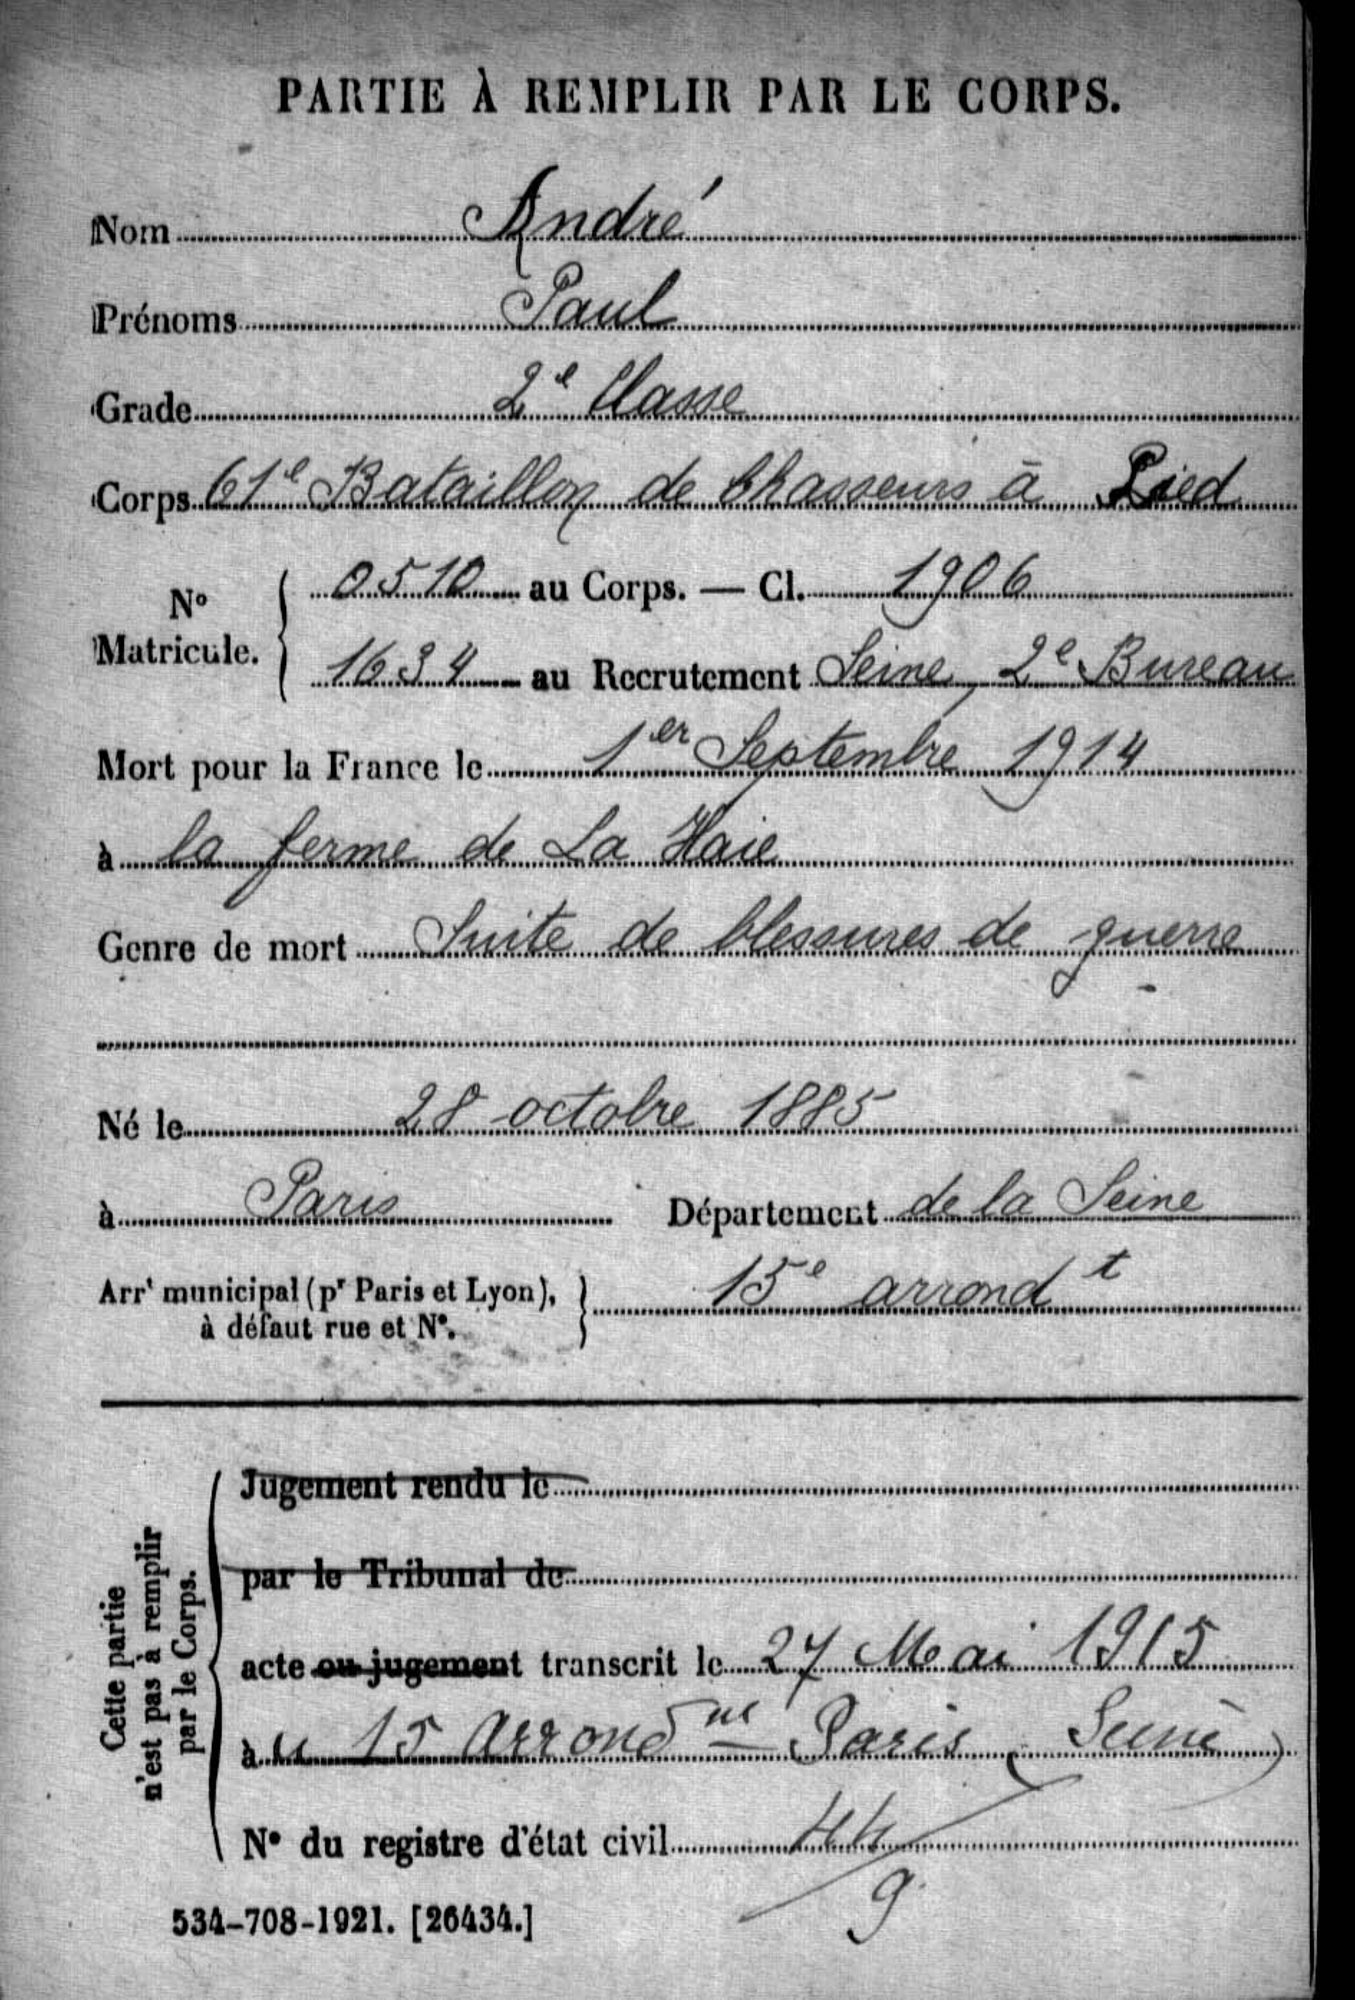 PARTIE À REMPLIR PAR LE CORPS.
Nom André
Prénoms Paul
Grade 2e Classe
Corps 61e Bataillon de Chasseurs à Pied
No Matricule. 0510 au Corps. — Cl. 1906
1634 au Recrutement Seine, 2e Bureau
Mort pour la France le 1er Septembre 1914
à la ferme de La Haie
Genre de mort Suite de blessures de guerre
Né le 28 octobre 1885
à Paris Département de la Seine
Arrt municipal (pr Paris et Lyon), à défaut rue et No. 15e arrondt
Cette partie n'est pas à remplir par le Corps.
Jugement rendu le
par le Tribunal de
acte ou jugement transcrit le 27 Mai 1915
à u 15 Arrond Paris (Seine)
No du registre d'état civil 44/9
534-708-1921. [26434.]